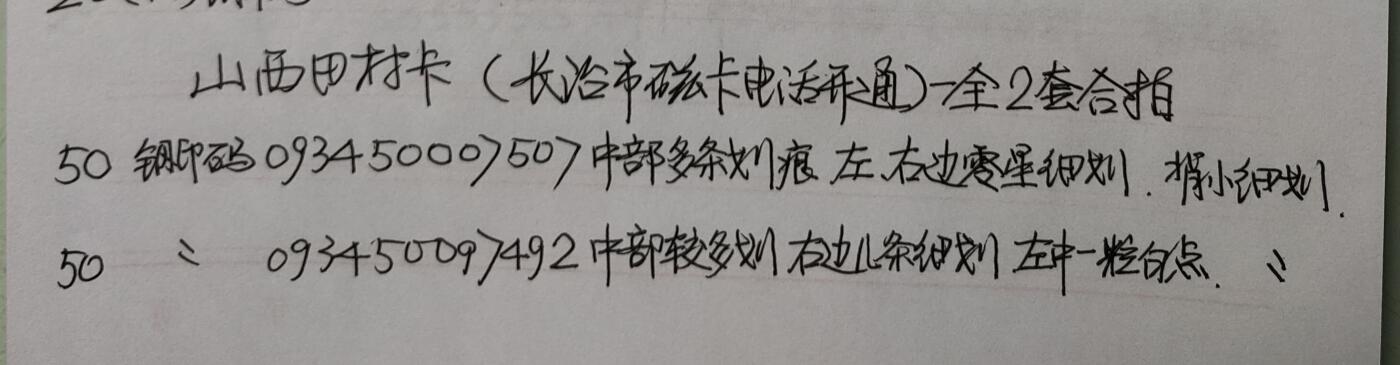 山西田村卡（长治市磁卡电话开通）一全2套合拍
50 钢印码093450007507中部多条划痕 左、右边零星细划．背小细划．
50 〃 093450097492中部较多划 右边几条细划 左中一粒白点． 〃